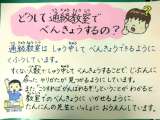 どうして通級教室で
べんきょうするの？
通級教室は しゅう中して べんきょうできるように
くふうしています。
すくない人数でしゅう中してべんきょうすることで、じぶんに
あった やりかたが見つかるようにしています。
また、「これならがんばれそう！」ということが わかると
教室での べんきょうに いかせるように、
たんにんの先生と いっしょに おうえんしています。